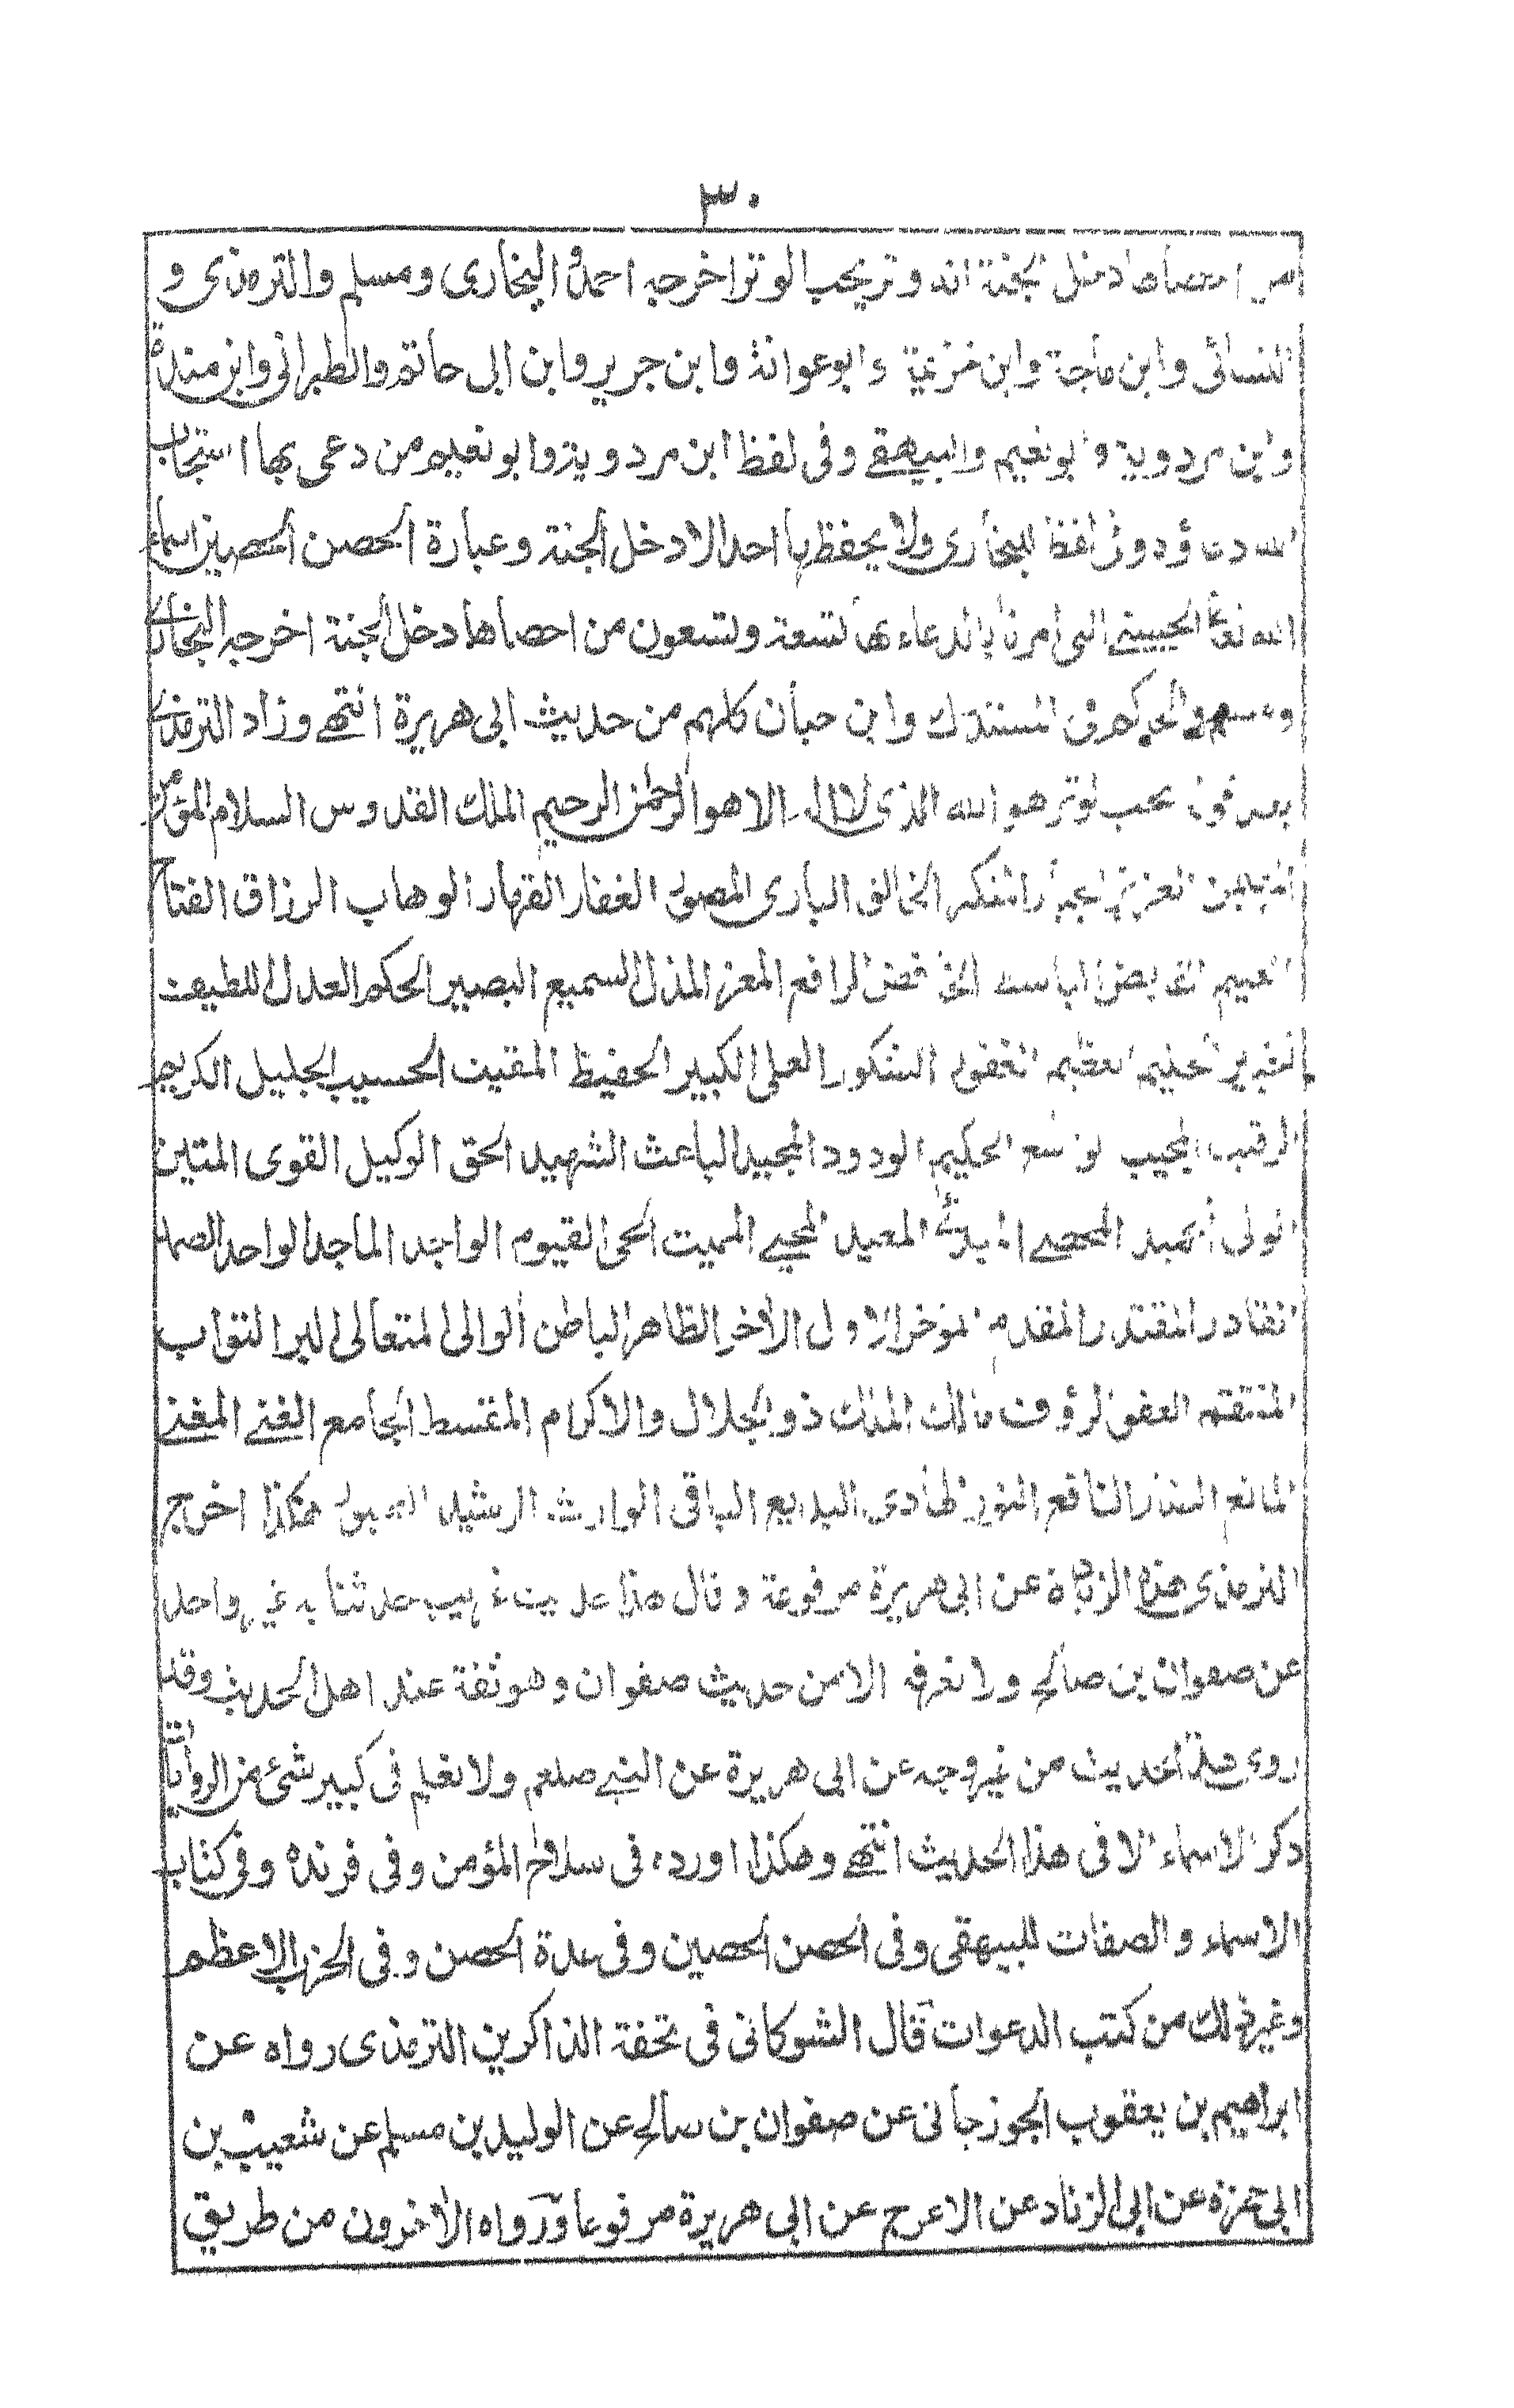 ٣٠
من احصاها دخل الجنة انه وتر يحب الوتر اخرجه احمد والبخارى ومسلم والترمذى و
النسائى وابن ماجة وابن خزيمة وابوعوانة وابن جرير وابن ابى حاتم والطبرانى وابن مندة
وابن مردوية وابونعيم والبيهقے وفى لفظ ابن مردوية وابونعيم من دعى بها استجاب
الله دعاؤه وفى لفظ للبخارى ولا يحفظها احد الا دخل الجنة وعبارة الحصن الحصين اسماء
الله تعالى الحسنے التى امرنا بالدعاء بها تسعة وتسعون من احصاها دخل الجنة اخرجه البخارى
ومسلم والحاكم فى المستدرك وابن حبان كلهم من حديث ابى هريرة انتهے وزاد الترمذى
بعد قوله يحب الوتر هو الله الذى لا اله الا هو الرحمن الرحيم الملك القدوس السلام المؤمن
المهيمن العزيز الجبار المتكبر الخالق البارى المصور الغفار القهار الوهاب الرزاق الفتاح
العليم القابض الباسط الخافض الرافع المعز المذل السميع البصير الحكم العدل اللطيف
الخبير الحليم العظيم الغفور الشكور العلى الكبير الحفيظ المقيت الحسيب الجليل الكريم
الرقيب المجيب الواسع الحكيم الودود المجيد الباعث الشهيد الحق الوكيل القوى المتين
الولى الحميد المحصے المبدئ المعيد المحيے المميت الحى القيوم الواجد الماجد الواحد الصمد
القادر المقتدر المقدم المؤخر الاول الأخر الظاهر الباطن الوالى المتعالى البر التواب
المنتقم العفو الرؤف مالك الملك ذو الجلال والاكرام المقسط الجامع الغنے المغنے
المانع الضار النافع النور الهادى البديع الباقى الوارث الرشيد الصبور هكذا اخرج
الترمذى هذه الزيادة عن ابى هريرة مرفوعة وقال هذا حديث غريب حدثنا به غير واحد
عن صفوان بن صالح ولا نعرفه الا من حديث صفوان وهو ثقة عند اهل الحديث وقد
روى هذا الحديث من غير وجه عن ابى هريرة عن النبے صلعم ولا نعلم فى كبير شئ من الروايات
ذكر الاسماء الا فى هذا الحديث انتهے وهكذا اورده فى سلاح المؤمن وفى فرنده وفى كتاب
الاسماء والصفات للبيهقى وفى الحصن الحصين وفى عدة الحصن وفى الحزب الاعظم
وغير ذلك من كتب الدعوات قال الشوكانى فى تحفة الذاكرين الترمذى رواه عن
ابراهيم بن يعقوب الجوزجانى عن صفوان بن صالح عن الوليد بن مسلم عن شعيب بن
ابى حمزة عن ابى الزناد عن الاعرج عن ابى هريرة مرفوعا ورواه الأخرون من طريق